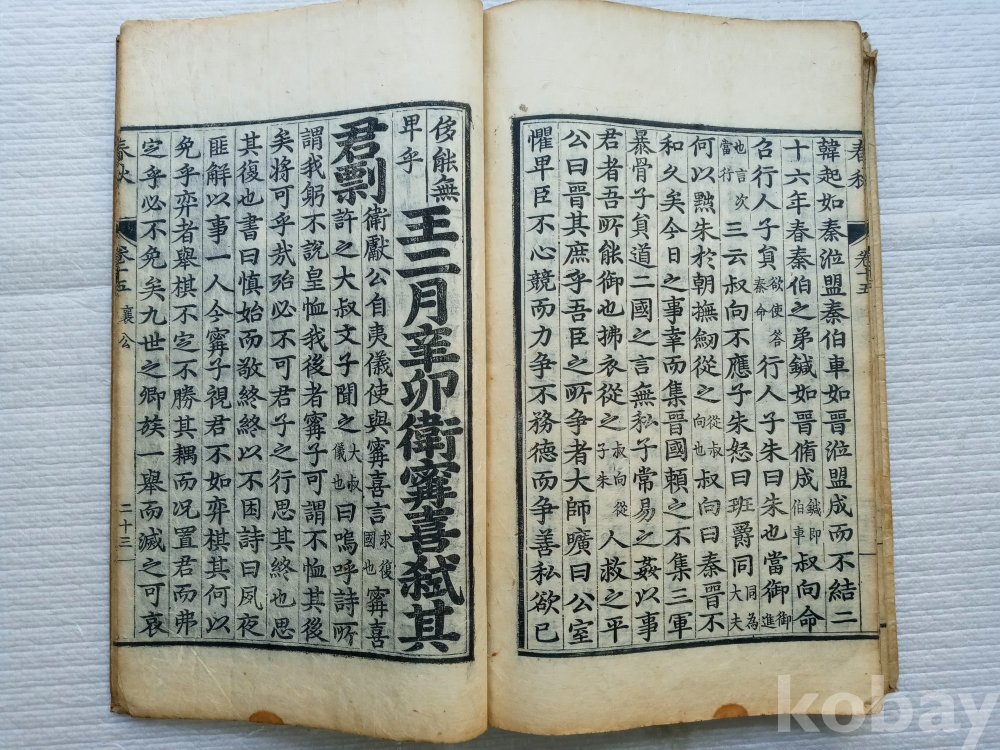 韓起如秦涖盟秦伯車如晉涖盟成而不結二
十六年春秦伯之弟鍼如晉脩成鍼即伯車叔向命
召行人子員欲使答秦命行人子朱曰朱也當御御進
也言次當行三云叔向不應子朱怒曰班爵同同為大夫
何以黜朱於朝撫劒從之從叔向也叔向曰秦晉不
和久矣今日之事幸而集晉國賴之不集三軍
暴骨子員道二國之言無私子常易之姦以事
君者吾所能御也拂衣從之叔向從子朱人救之平
公曰晉其庶乎吾臣之所争者大師曠曰公室
懼卑臣不心競而力争不務德而争善私欲已
春秋 卷十五
侈能無卑乎王二月辛卯衛甯喜弑其
君剽衛獻公自夷儀使與甯喜言求復國也甯喜
許之大叔文子聞之大叔儀也曰嗚呼詩所
謂我躬不說皇恤我後者甯子可謂不恤其後
矣將可乎㢤殆必不可君子之行思其終也思
其復也書曰慎始而敬終終以不困詩曰夙夜
匪解以事一人今甯子視君不如弈棋其何以
免乎弈者舉棋不定不勝其耦而况置君而弗
定乎必不免矣九世之卿族一舉而滅之可哀
春秋 卷十五 襄公 二十三
kobay